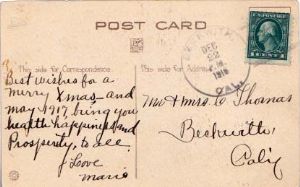 POST CARD
This side for Correspondence
This side for Address
Best wishes for a
Merry Xmas and
may 1917 bring you
health happiness and
Prosperity, to all
Love
Marie
DEC
22
1916
CAL.
1 CENT 1
Mr & Mrs. C Thomas
Beckwith
Calif